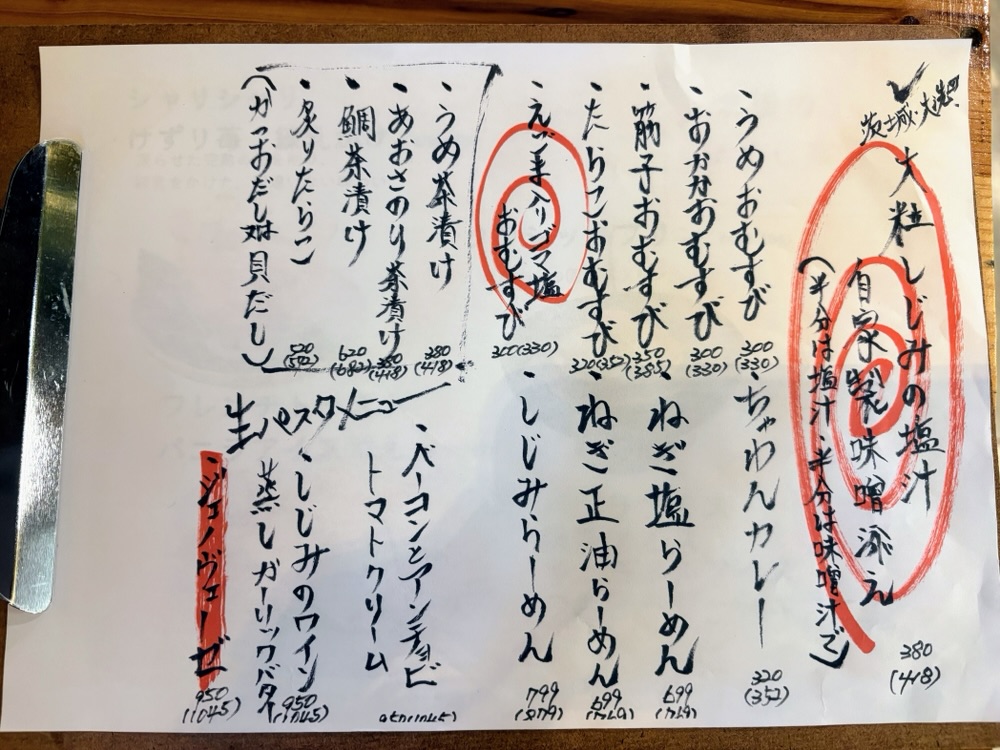 茨城・涸沼
大粒しじみの塩汁
自家製味噌添え
(半分は塩汁・半分は味噌汁で)
380
(418)
・うめおむすび
300
(330)
・おかかおむすび
300
(330)
・筋子おむすび
350
(385)
・たらこおむすび
320(352)
・えごま入りゴマ塩
おむすび
300(330)
ちゃわんカレー
320
(352)
・ねぎ塩らーめん
699
(769)
・ねぎ正油らーめん
699
(769)
・しじみらーめん
799
(879)
・うめ茶漬け
380
(418)
・あおさのり茶漬け
380
(418)
・鯛茶漬け
620
(682)
・炙りたらこ
520
(572)
(かつおだし又は貝だし)
生パスタメニュー
・ベーコンとアンチョビ
トマトクリーム
950(1045)
・しじみのワイン
蒸しガーリックバター
950
(1045)
・ジェノヴェーゼ
950
(1045)